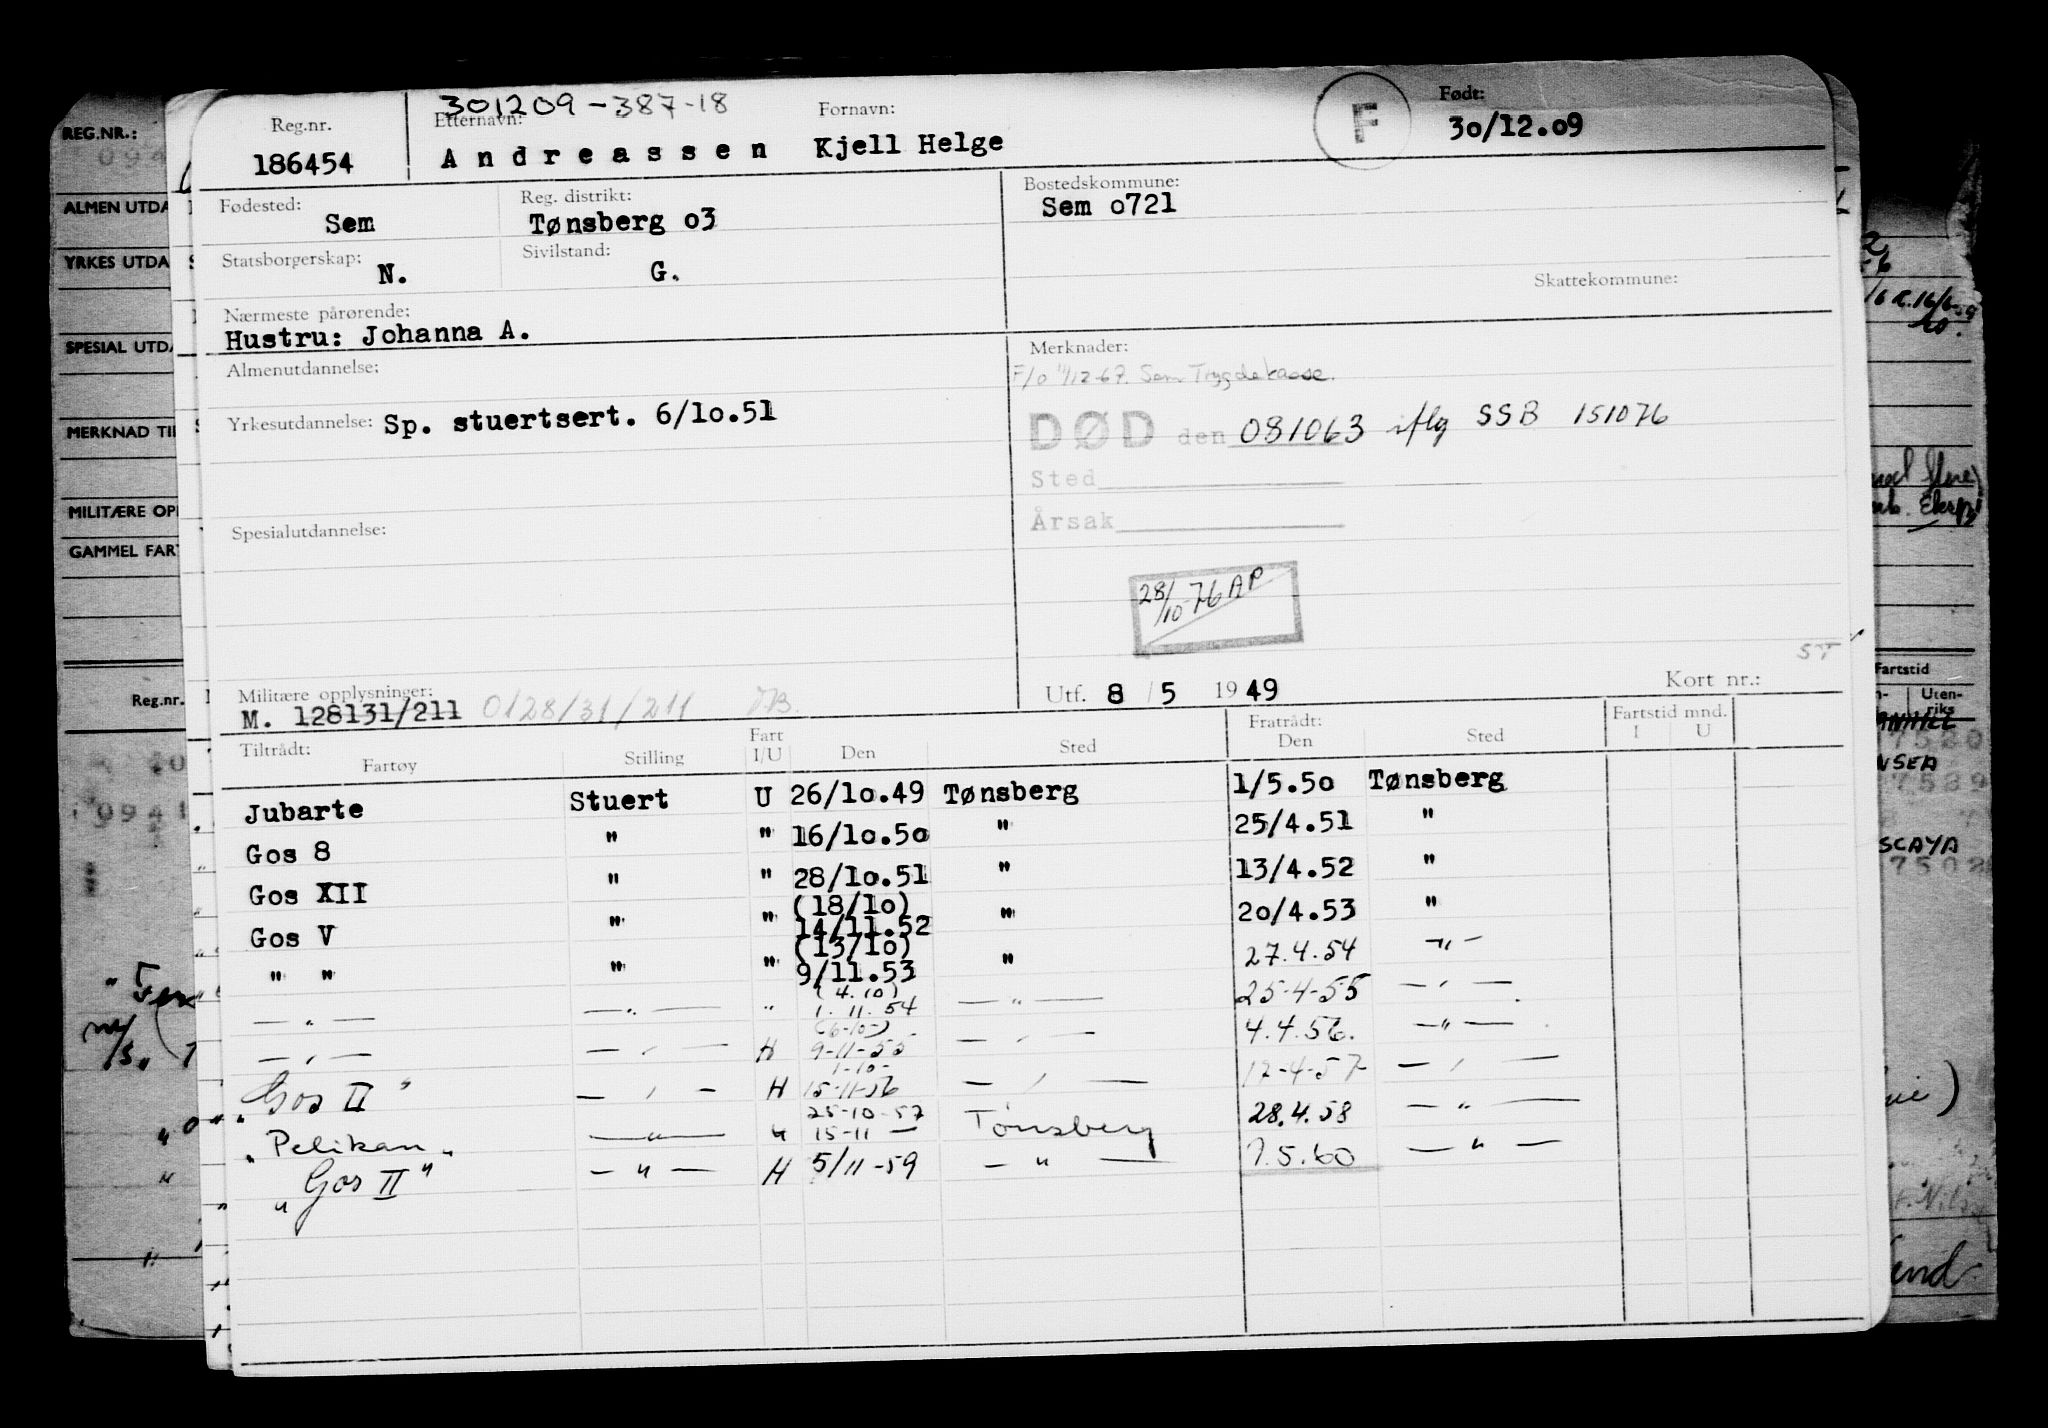 301209-387-18
Reg.nr. Etternavn: Fornavn: F Født:
186454 Andreassen Kjell Helge 30/12.09
Fødested: Reg. distrikt: Bostedskommune:
Sem Tønsberg o3 Sem o721
Statsborgerskap: Sivilstand: Skattekommune:
N. G.
Nærmeste pårørende:
Hustru: Johanna A.
Almenutdannelse: Merknader:
F/o 1/12-67. Sem Trygdekasse.
Yrkesutdannelse: Sp. stuertsert. 6/1o.51
DØD den 081063 iflg SSB 151076
Sted
Årsak
Spesialutdannelse:
28/10-76 AP
ST
Militære opplysninger: Utf. 8 / 5 1949 Kort nr.:
M. 128131/211 0128/31/211
Tiltrådt: Fratrådt: Fartstid mnd.
Fartøy Stilling Fart I/U Den Sted Den Sted I U
Jubarte Stuert U 26/1o.49 Tønsberg 1/5.5o Tønsberg
Gos 8 " " 16/1o.5o " 25/4.51 "
Gos XII " " 28/1o.51 " 13/4.52 "
(18/1o)
Gos V " " 14/11.52 " 20/4.53 "
(13/1o)
" " " " 9/11.53 " 27.4.54 — " —
(4.10)
— " — — " — " 1.11.54 — " — 25-4-55 — " —
(6-10-)
— " — — " — H 9-11-55 — " — 4.4.56. — " —
1-10-
"Gos II" — " — H 15-11-56 — " — 12-4-57 — " —
25-10-57
"Pelikan" — " — " 15-11 — Tønsberg 28.4.58 — " —
"Gos II" — " — H 5/11-59 — " — 7.5.60 — " —
REG.NR.:
ALMEN UTDA
YRKES UTDA
SPESIAL UTDA
MERKNAD TI
MILITÆRE OP
GAMMEL FAR
Reg.nr.
Fartstid
Uten-
riks
NSEA
SCAYA